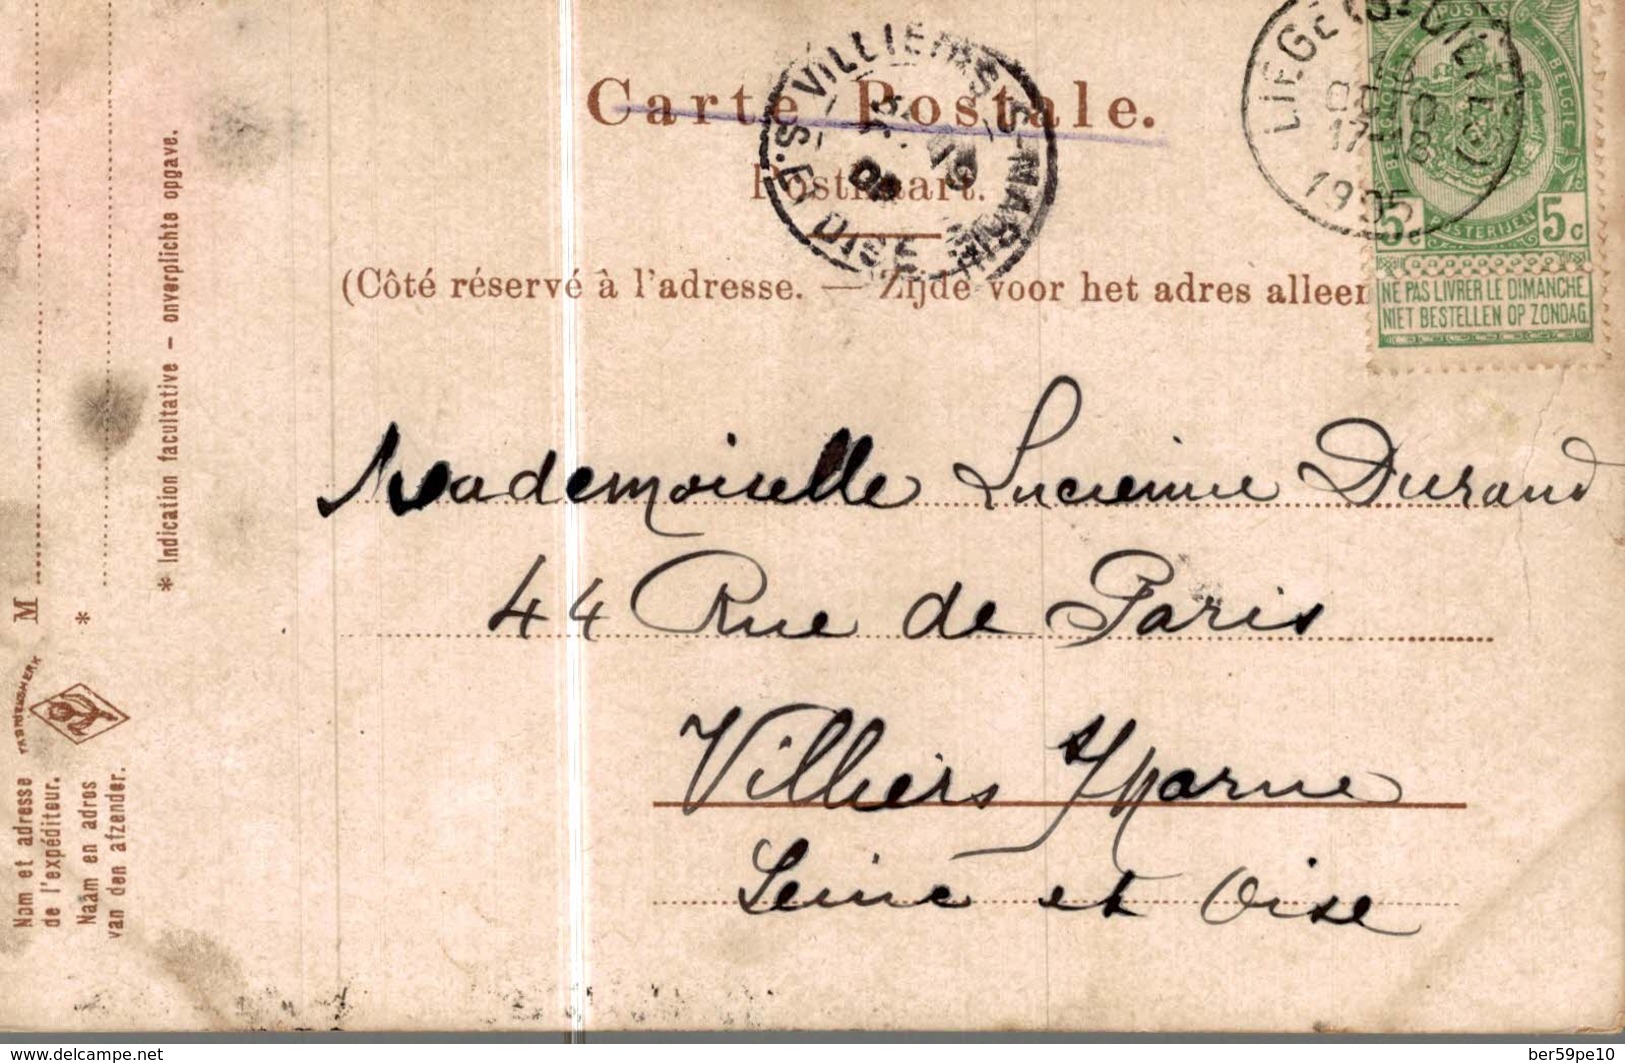 Carte Postale.
Postkaart.
(Côté réservé à l'adresse. — Zijde voor het adres alleen
VILLIERS-S-MARNE
S. & OISE
LIEGE (St GILLES)
17-18
1905
POSTES
BELGIE
5c POSTERIJEN 5c
NE PAS LIVRER LE DIMANCHE
NIET BESTELLEN OP ZONDAG.
Mademoiselle Lucienne Durand
44 Rue de Paris
Villiers s/Marne
Seine et Oise
Nom et adresse
de l'expéditeur.
Naam en adres
van den afzender.
FABRIEKSMERK
M
*
* Indication facultative – onverplichte opgave.
https://www.delcampe.net
ber59pe10